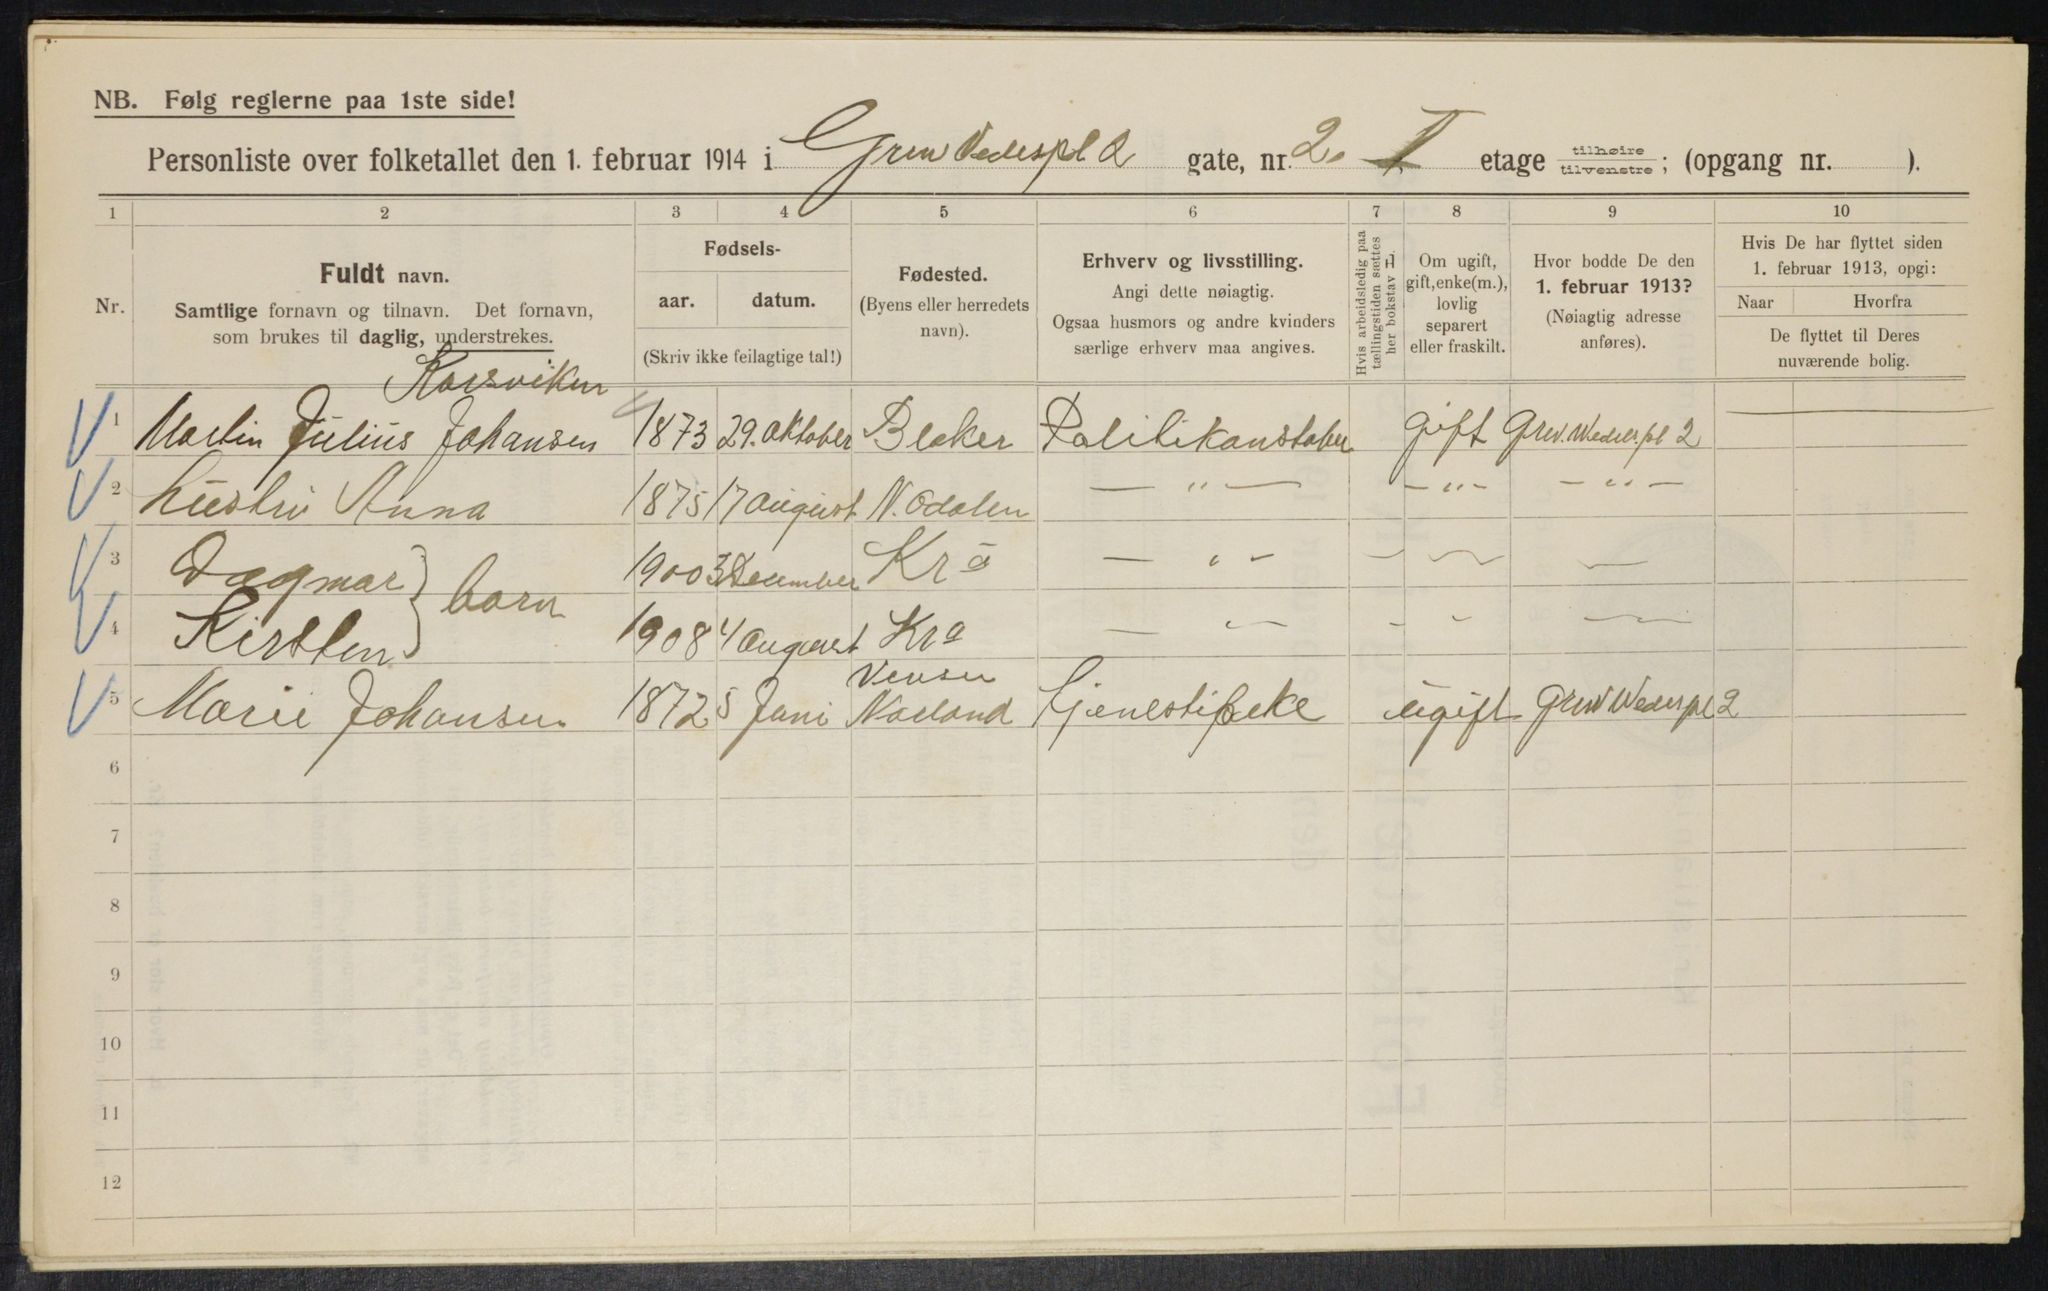 NB. Følg reglerne paa 1ste side!
Personliste over folketallet den 1. februar 1914 i Grev Vedespl 2 gate, nr. 2. I etage tilhøire tilvenstre; (opgang nr. ).
1 2 3 4 5 6 7 8 9 10
Nr.
Fuldt navn.
Samtlige fornavn og tilnavn. Det fornavn,
som brukes til daglig, understrekes.
Fødsels-
aar. datum.
(Skriv ikke feilagtige tal!)
Fødested.
(Byens eller herredets
navn).
Erhverv og livsstilling.
Angi dette nøiagtig.
Ogsaa husmors og andre kvinders
særlige erhverv maa angives.
Hvis arbeidsledig paa
tællingstiden sættes
her bokstav L.
Om ugift,
gift, enke(m.),
lovlig
separert
eller fraskilt.
Hvor bodde De den
1. februar 1913?
(Nøiagtig adresse
anføres).
Hvis De har flyttet siden
1. februar 1913, opgi:
Naar Hvorfra
De flyttet til Deres
nuværende bolig.
Korsviken
1 Martin Julius Johansen 1873 29. oktober Blaker Politikonstabel gift Grev. Wedels. pl 2
2 hustru Anna 1875 17 august N. Odalen — " — — " — — " —
3 Dagmar } barn 1900 Desember Kra — " —
4 Kirsten 1908 4 august Kra
5 Marie Johansen 1872 5 Juni Norland Tjenestipeke ugift Grev Wedelspl 2
6
7
8
9
10
11
12